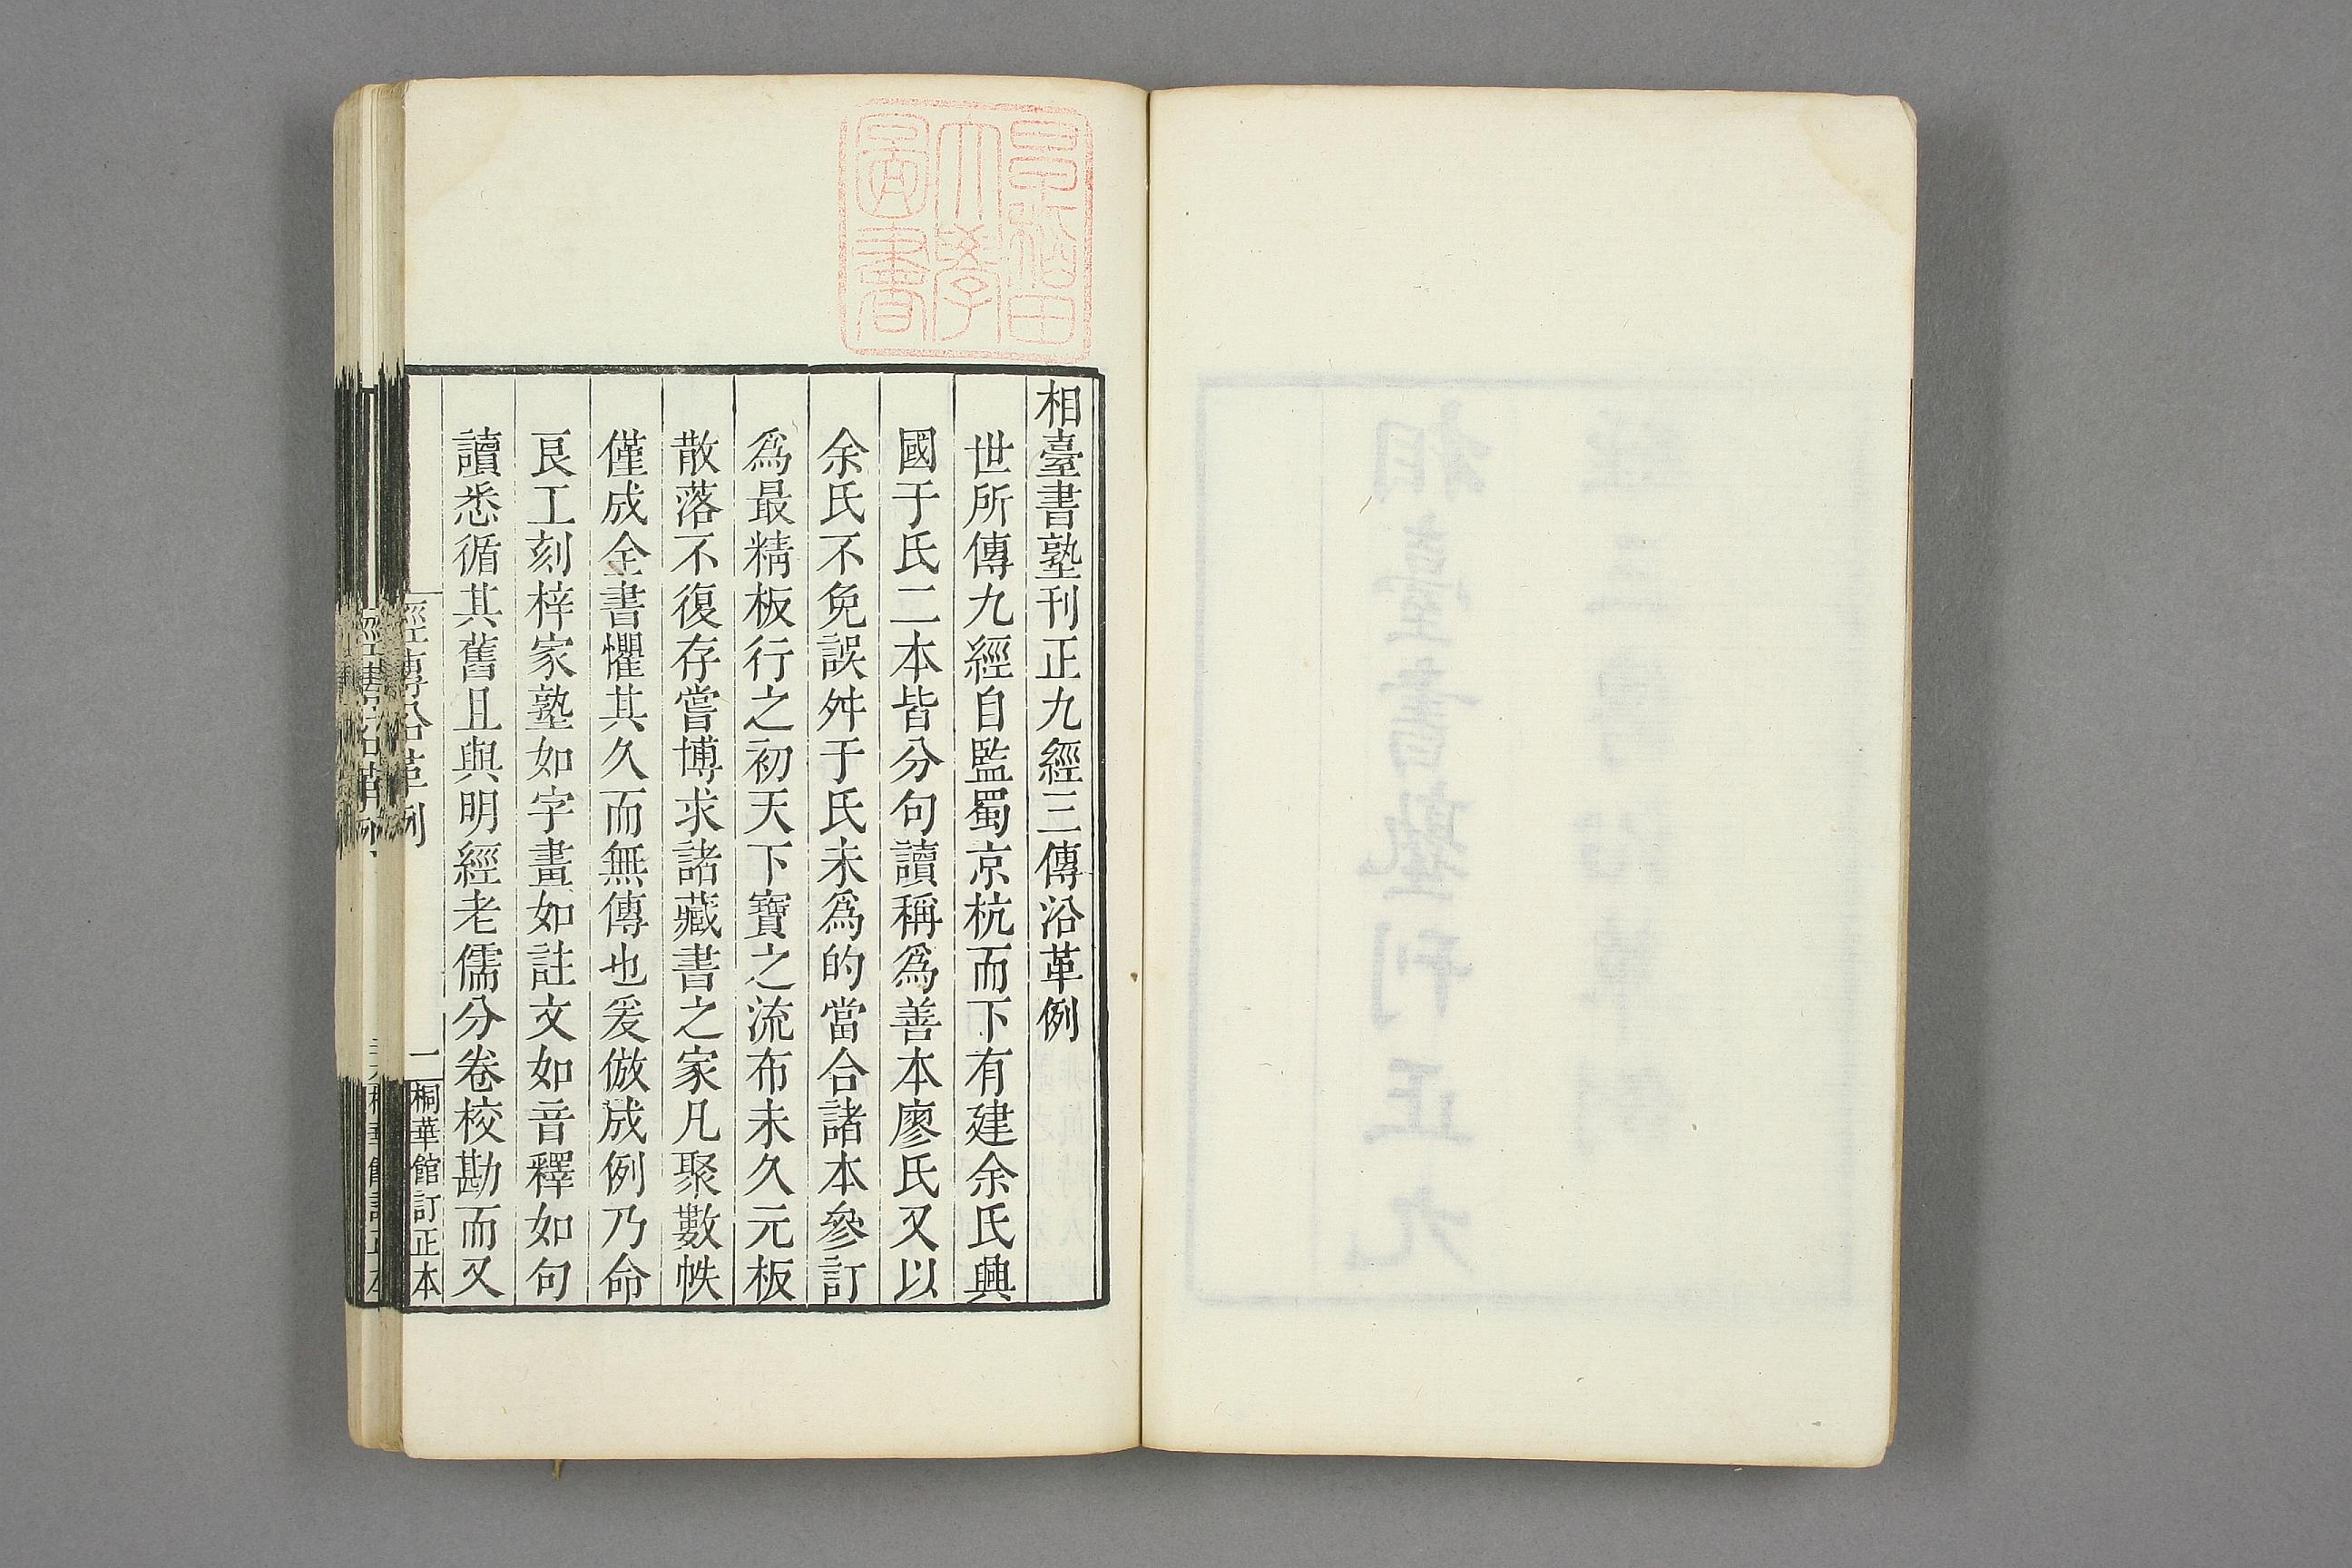 早稻田
大學
圖書
相臺書塾刊正九經三傳沿革例
世所傳九經自監蜀京杭而下有建余氏興
國于氏二本皆分句讀稱爲善本廖氏又以
余氏不免誤舛于氏未爲的當合諸本參訂
爲最精板行之初天下寶之流布未久元板
散落不復存嘗博求諸藏書之家凡聚數帙
僅成全書懼其久而無傳也爰倣成例乃命
良工刻梓家塾如字畫如註文如音釋如句
讀悉循其舊且與明經老儒分卷校勘而又
經傳沿革例 一 桐華館訂正本